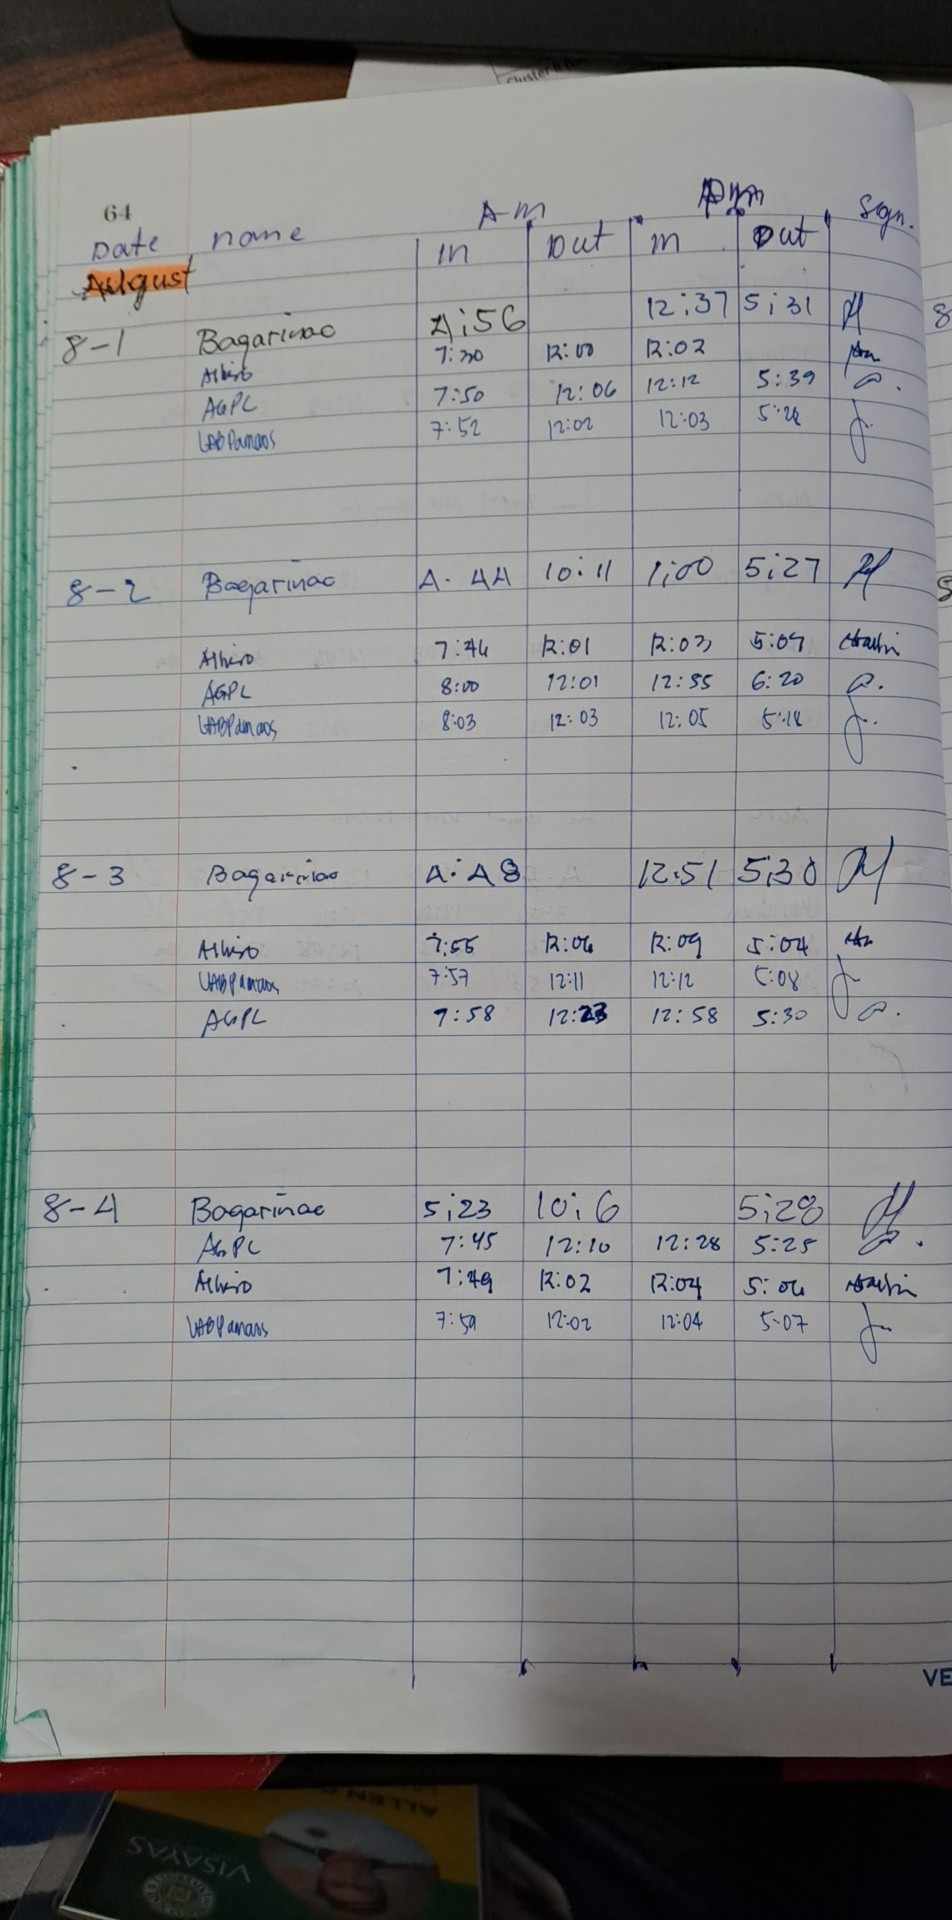 64
A-m Pm Sign.
Date name In Out In Out
August
8-1 Bagarinao 4:56 12:37 5:31
Albiro 7:30 12:00 12:02
AGPL 7:50 12:06 12:12 5:39
UABPamans 7:52 12:02 12:03 5:28
8-2 Bagarinao 4:44 10:11 1:00 5:27
Albiro 7:46 12:01 12:03 5:09
AGPL 8:00 12:01 12:55 6:20
UABPamans 8:03 12:03 12:05 5:18
8-3 Bagarinao 4:48 12:51 5:30
Albiro 7:55 12:06 12:09 5:04
UABPamans 7:57 12:11 12:12 5:08
AGPL 7:58 12:23 12:58 5:30
8-4 Bagarinao 5:23 10:6 5:28
AGPL 7:45 12:10 12:28 5:25
Albiro 7:49 12:02 12:04 5:06
UABPamans 7:59 12:02 12:04 5:07
VE
ALLEN
VISAYAS